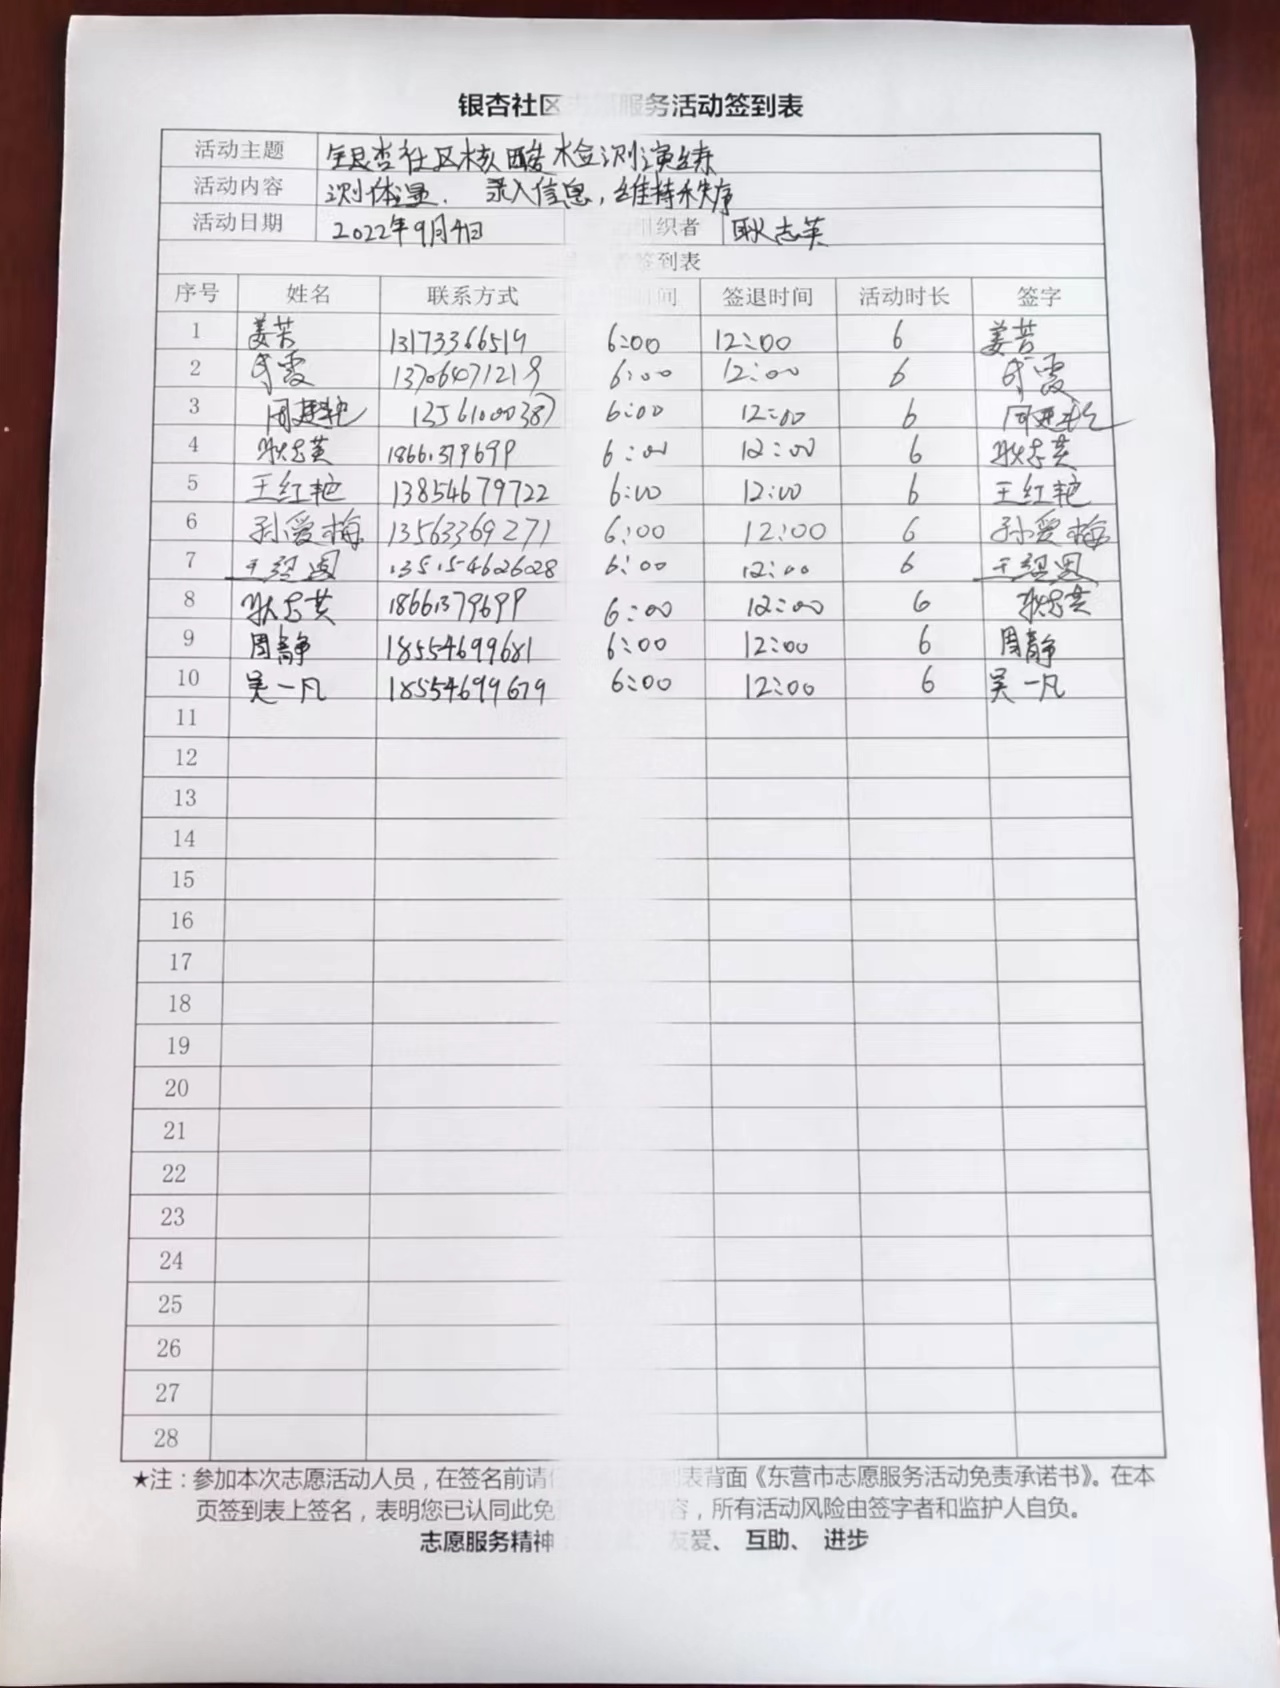 银杏社区 服务活动签到表
活动主题 银杏社区核酸检测演练
活动内容 测体温. 录入信息,维持秩序
活动日期 2022年9月4日 组织者 耿志英
签到表
序号 姓名 联系方式 间 签退时间 活动时长 签字
1 姜苦 13173366519 6:00 12:00 6 姜苦
2 霞 13706471219 6:00 12:00 6 霞
3 周建艳 13561000387 6:00 12:00 6 周建艳
4 耿志英 18661379699 6:00 12:00 6 耿志英
5 王红艳 13854679722 6:00 12:00 6 王红艳
6 孙爱梅 13563369271 6:00 12:00 6 孙爱梅
7 王 13515462628 6:00 12:00 6 王
8 耿志英 18661379699 6:00 12:00 6 耿志英
9 周静 18554699681 6:00 12:00 6 周静
10 吴一凡 18554699679 6:00 12:00 6 吴一凡
11
12
13
14
15
16
17
18
19
20
21
22
23
24
25
26
27
28
★注：参加本次志愿活动人员，在签名前请 到表背面《东营市志愿服务活动免责承诺书》。在本
页签到表上签名，表明您已认同此免 内容，所有活动风险由签字者和监护人自负。
志愿服务精神 友爱、 互助、 进步